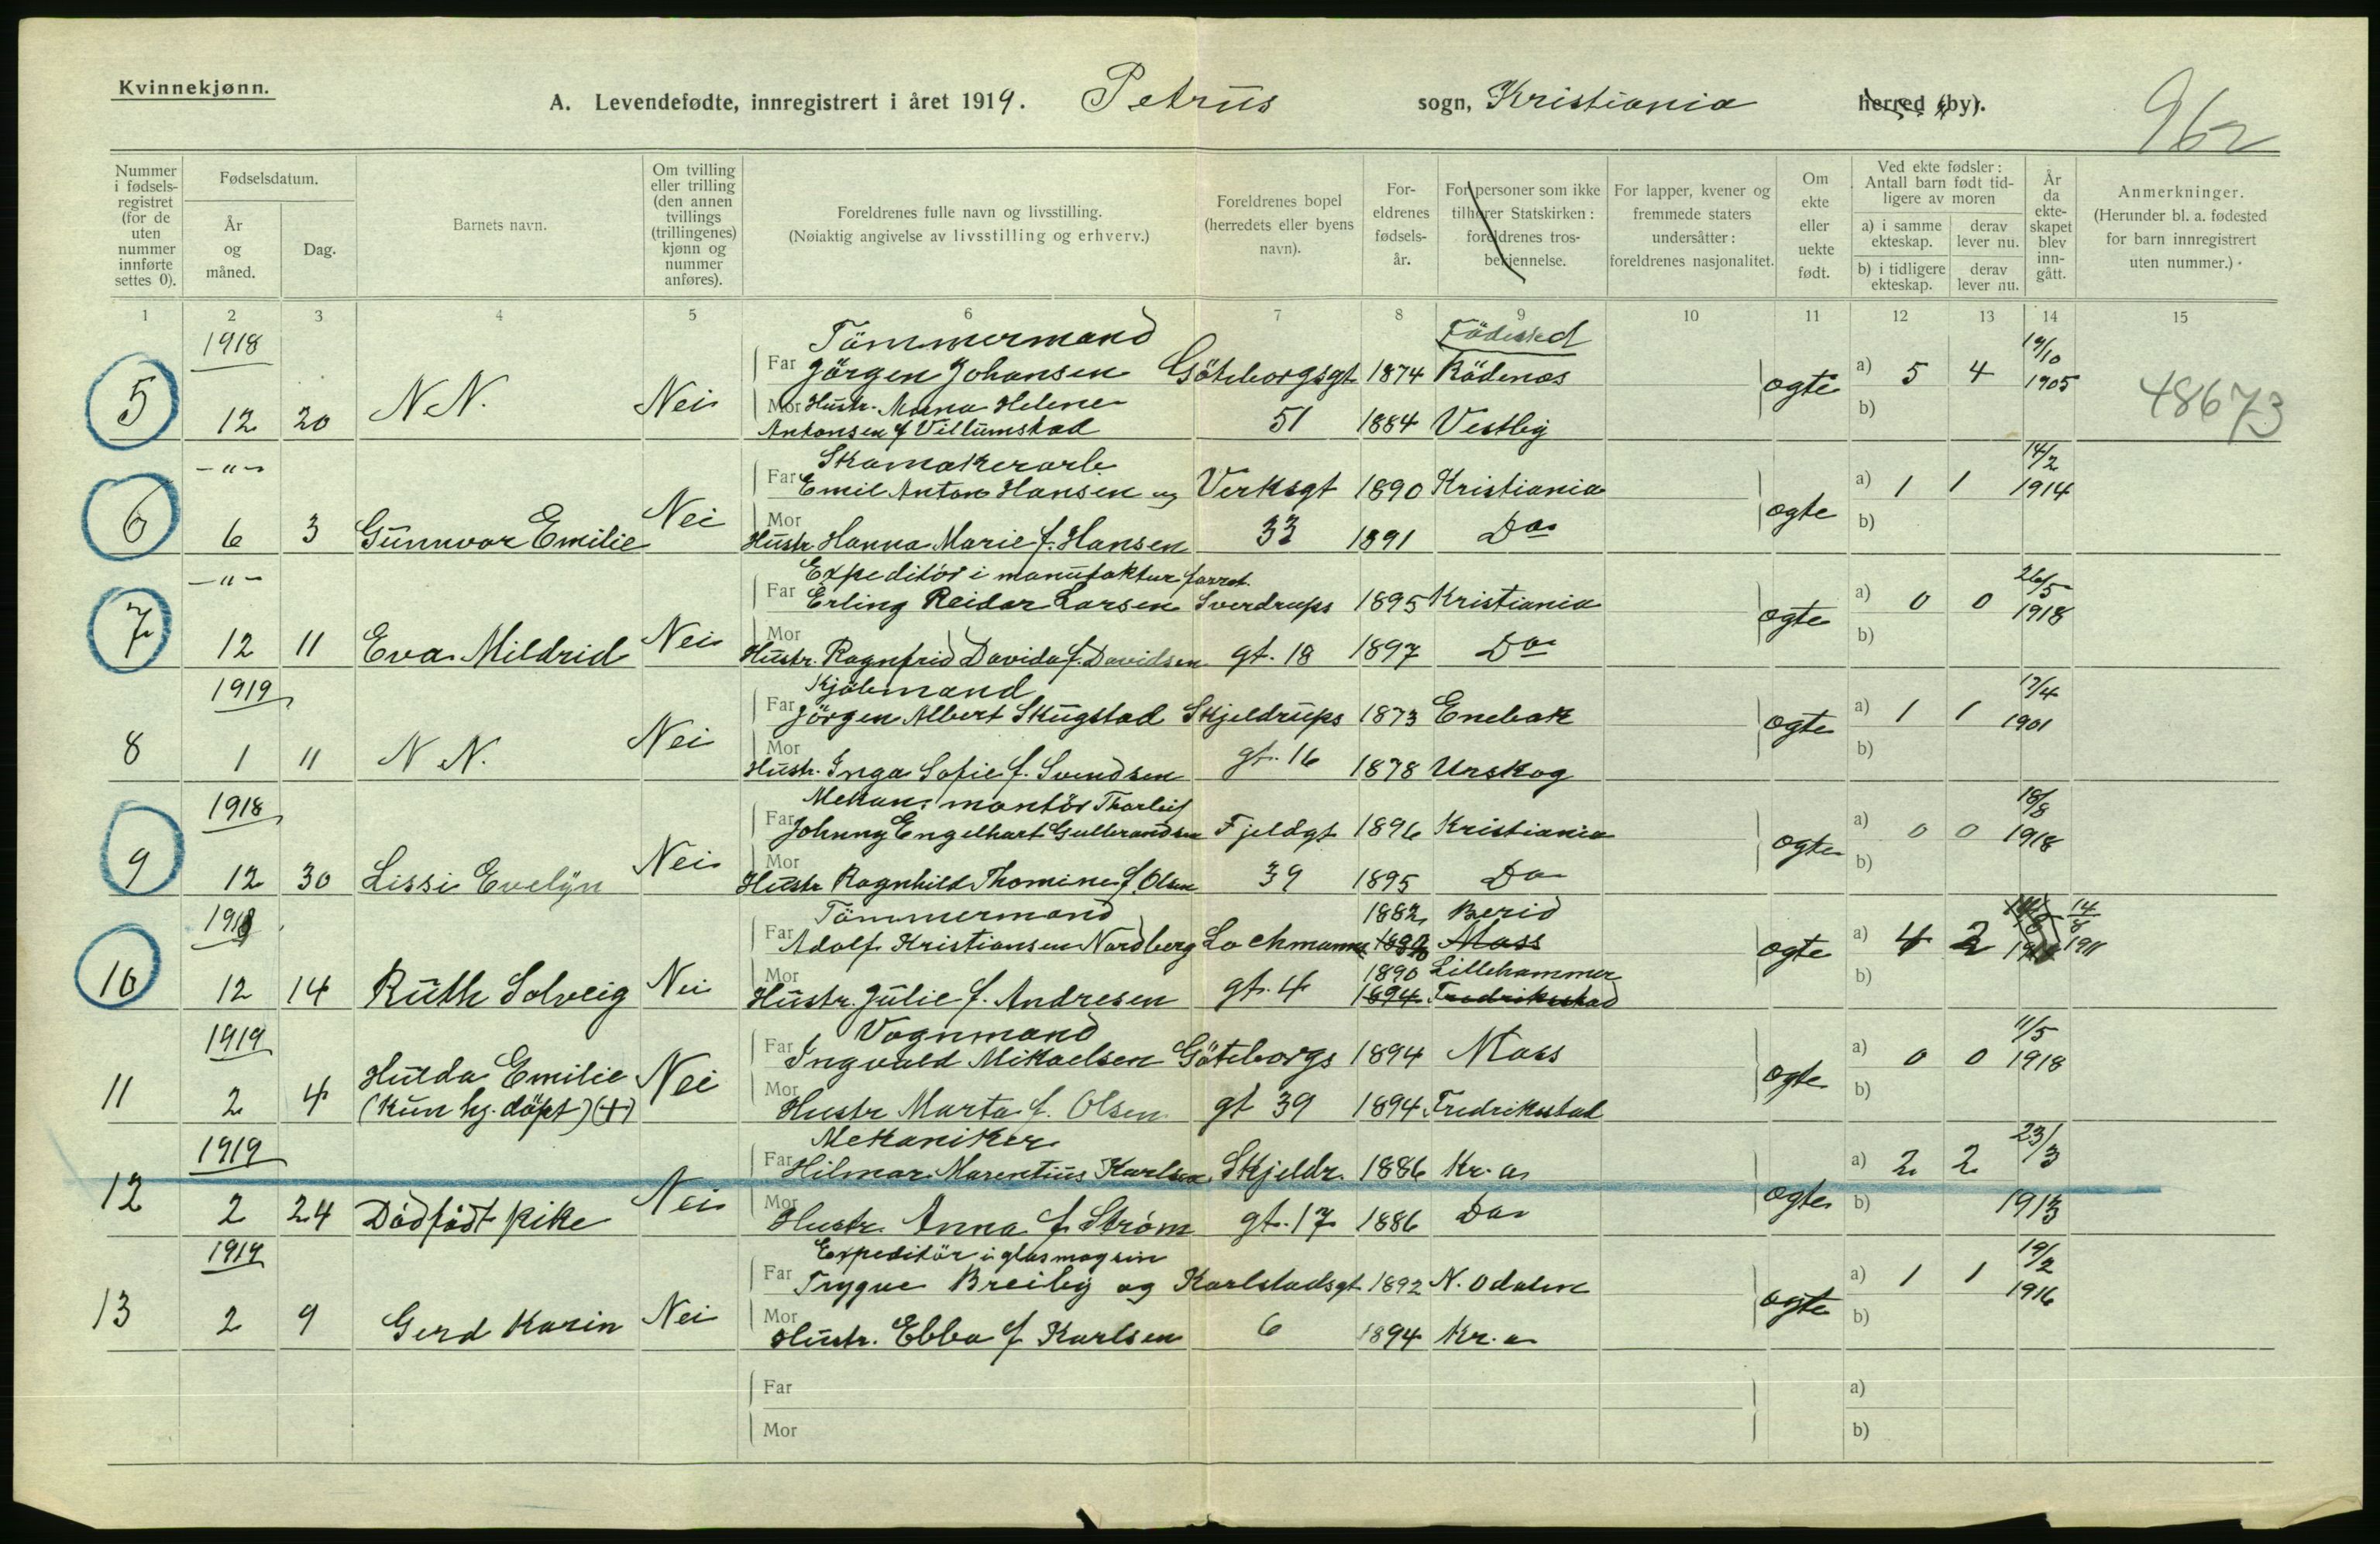 Kvinnekjønn.
A. Levendefødte, innregistrert i året 1919. Petrus sogn, Kristiania herred (by).
962
Nummer i fødsels-registret (for de uten nummer innførte settes 0).
Fødselsdatum.
År og måned.
Dag.
Barnets navn.
Om tvilling eller trilling (den annen tvillings (trillingenes) kjønn og nummer anføres).
Foreldrenes fulle navn og livsstilling.
(Nøiaktig angivelse av livsstilling og erhverv.)
Foreldrenes bopel (herredets eller byens navn).
For-eldrenes fødsels-år.
For personer som ikke tilhører Statskirken: foreldrenes tros-bekjennelse.
For lapper, kvener og fremmede staters undersåtter: foreldrenes nasjonalitet.
Om ekte eller uekte født.
Ved ekte fødsler: Antall barn født tid-ligere av moren
a) i samme ekteskap.
derav lever nu.
b) i tidligere ekteskap.
derav lever nu.
År da ekte-skapet blev inn-gått.
Anmerkninger.
(Herunder bl. a. fødested for barn innregistrert uten nummer.)
1 2 3 4 5 6 7 8 9 10 11 12 13 14 15
1918 Tömmermand Födested 19/10
5 Far Jörgen Johansen Göteborgsgt 1874 Rödenes ogte a) 5 4 1905 48673
12 20 N N. Nei Mor Hustr. Anna Helene 51 1884 Vestby b)
Antonsen f Villumstad
-"- Skomakerarb. 14/2
6 Far Emil Anton Hansen og Verksgt 1890 Kristiania ogte a) 1 1 1914
6 3 Gunnvor Emilie Nei Mor Hustr Hanna Marie f. Hansen 33 1891 Do b)
-"- Expeditör i manufaktur forret. 26/5
7 Far Erling Reidar Larsen Sverdrups 1895 Kristiania ogte a) 0 0 1918
12 11 Eva Mildrid Nei Mor Hustr. Ragnfrid Davida f. Davidsen gt. 18 1897 Do b)
1919 Kjöbmand 17/4
8 Far Jörgen Albert Skugstad Skjeldrups 1873 Enebak ogte a) 1 1 1901
1 11 N N. Nei Mor Hustr. Inga Sofie f. Svendsen gt. 16 1878 Urskog b)
1918 Mekan. montör Thorleif 18/8
9 Far Johnny Engelhart Gulbrandsen Fjeldgt 1896 Kristiania ogte a) 0 0 1918
12 30 Lissi Evelyn Nei Mor Hustr Ragnhild Thomine f. Olsen 39 1895 Do b)
1918 Tömmermand 1882 Berid 14/8
10 Far Adolf Kristiansen Nordberg Lochmanns Moss ogte a) 4 2 1911
1890 Lillehammer
12 14 Ruth Solveig Nei Mor Hustr. Julie f. Andresen gt. 4 1894 Fredriksstad b)
1919 Vognmand 11/5
11 Far Ingvald Mikaelsen Göteborgs 1894 Moss ogte a) 0 0 1918
2 4 Hulda Emilie Nei Mor Hustr Marta f. Olsen gt 39 1894 Fredriksstad b)
(Kun hj. döpt) (+)
1919 Mekaniker 23/3
12 Far Hilmar Marentius Karlsen Skjeldr. 1886 Kr.a ogte a) 2 2
2 24 Dödfödt pike Nei Mor Hustr. Anna f Ström gt. 17 1886 Do b) 1913
1919 Expeditör i glasmagsin 19/2
13 Far Trygve Breiby og Karlstadsgt 1892 N. Odalen ogte a) 1 1 1916
2 9 Gerd Karin Nei Mor Hustr. Ebba f Karlsen 6 1894 Kr.a b)
Far a)
Mor b)